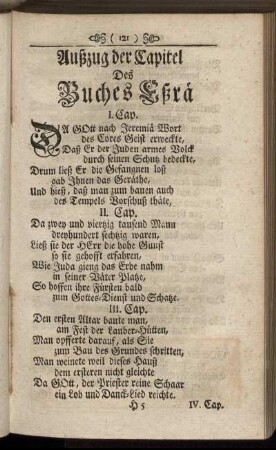 ( 121 )
Außzug der Capitel
Des
Buches Eßrä
I. Cap.
DA GOtt nach Jeremiä Wort
des Cores Geist erweckte,
Daß Er der Juden armes Volck
durch seinen Schutz bedeckte,
Drum ließ Er die Gefangnen loß
gab Ihnen das Geräthe,
Und hieß, daß man zum bauen auch
des Tempels Vorschuß thäte,
II. Cap.
Da zwey und viertzig tausend Mann
dreyhundert sechtzig waren,
Ließ sie der HErr die hohe Gunst
so sie gehofft erfahren,
Wie Juda gieng das Erbe nahm
in seiner Väter Platze,
So hoffen ihre Fürsten bald
zum Gottes-Dienst und Schatze.
III. Cap.
Den ersten Altar baute man,
am Fest der Lauber-Hütten,
Man opfferte darauf, als Sie
zum Bau des Grundes schritten,
Man weinete weil dieses Hauß
dem ersteren nicht gleichte
Da GOtt, der Priester reine Schaar
ein Lob und Danck-Lied reichte.
H 5 IV. Cap.